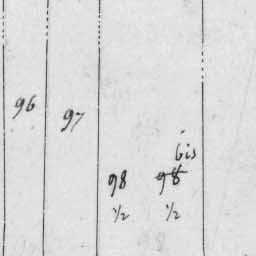 96
97
bis
98 98
½ ½